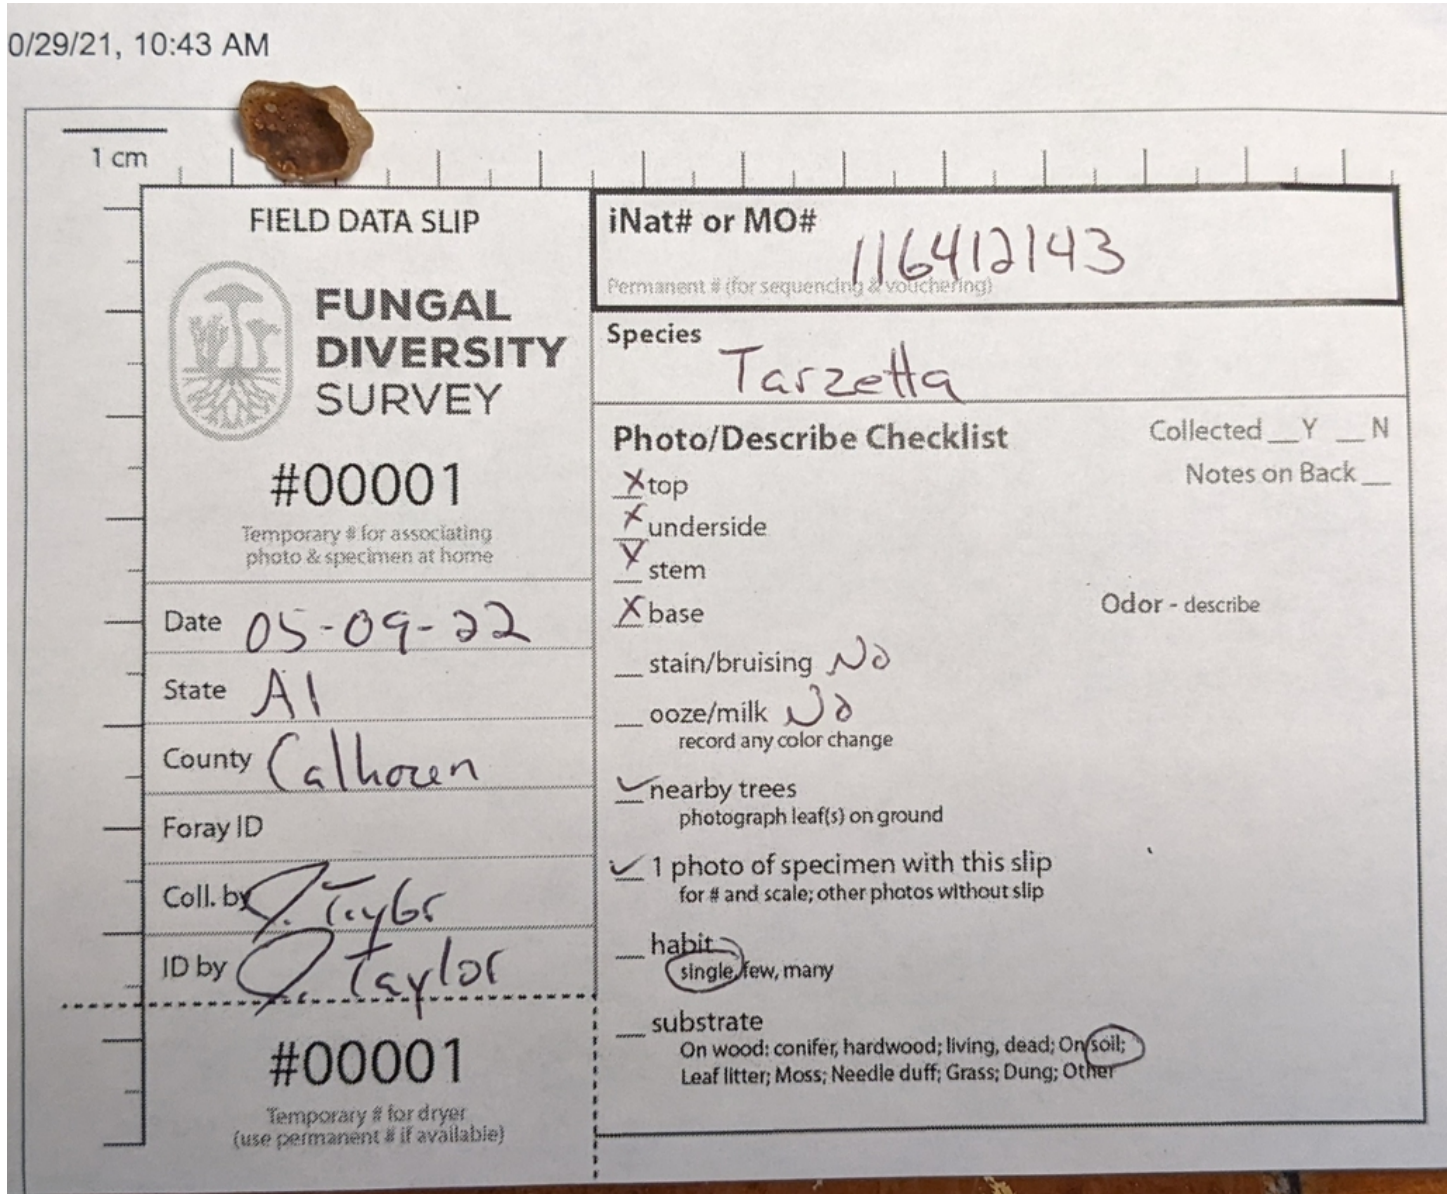 0/29/21, 10:43 AM
1 cm
FIELD DATA SLIP
FUNGAL
DIVERSITY
SURVEY
#00001
Temporary # for associating
photo & specimen at home
Date 05-09-22
State Al
County Calhoun
Foray ID
Coll. by J. Taylor
ID by J. Taylor
#00001
Temporary # for dryer
(use permanent # if available)
iNat# or MO#
116412143
Permanent # (for sequencing & vouchering)
Species
Tarzetta
Photo/Describe Checklist
Collected __Y __N
Notes on Back __
X top
X underside
X stem
X base
Odor - describe
__ stain/bruising No
__ ooze/milk No
record any color change
✓ nearby trees
photograph leaf(s) on ground
✓ 1 photo of specimen with this slip
for # and scale; other photos without slip
__ habit
single, few, many
__ substrate
On wood: conifer, hardwood; living, dead; On soil;
Leaf litter; Moss; Needle duff; Grass; Dung; Other